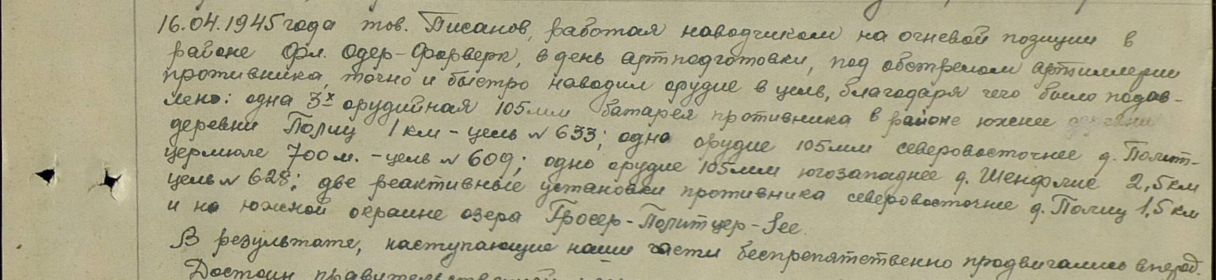 16.04.1945 года тов. Писанов, работая наводчиком на огневой позиции в
районе фл. Одер-Форверк, в день артподготовки, под обстрелом артиллерии
противника, точно и быстро наводил орудие в цель, благодаря чего было подав-
лено: одна 3х орудийная 105мм батарея противника в районе южнее деревни
деревни Полиц 1 км - цель № 633; одно орудие 105мм северовосточнее д. Полит-
цермюле 700 м. - цель № 609; одно орудие 105мм югозападнее д. Шенфлис 2,5 км
цель № 628; две реактивные установки противника северовосточнее д. Полиц 1,5 км
и на южной окраине озера Гросер-Политцер-See.
В результате, наступающие наши части беспрепятственно продвигались вперед.
Достоин правительственной